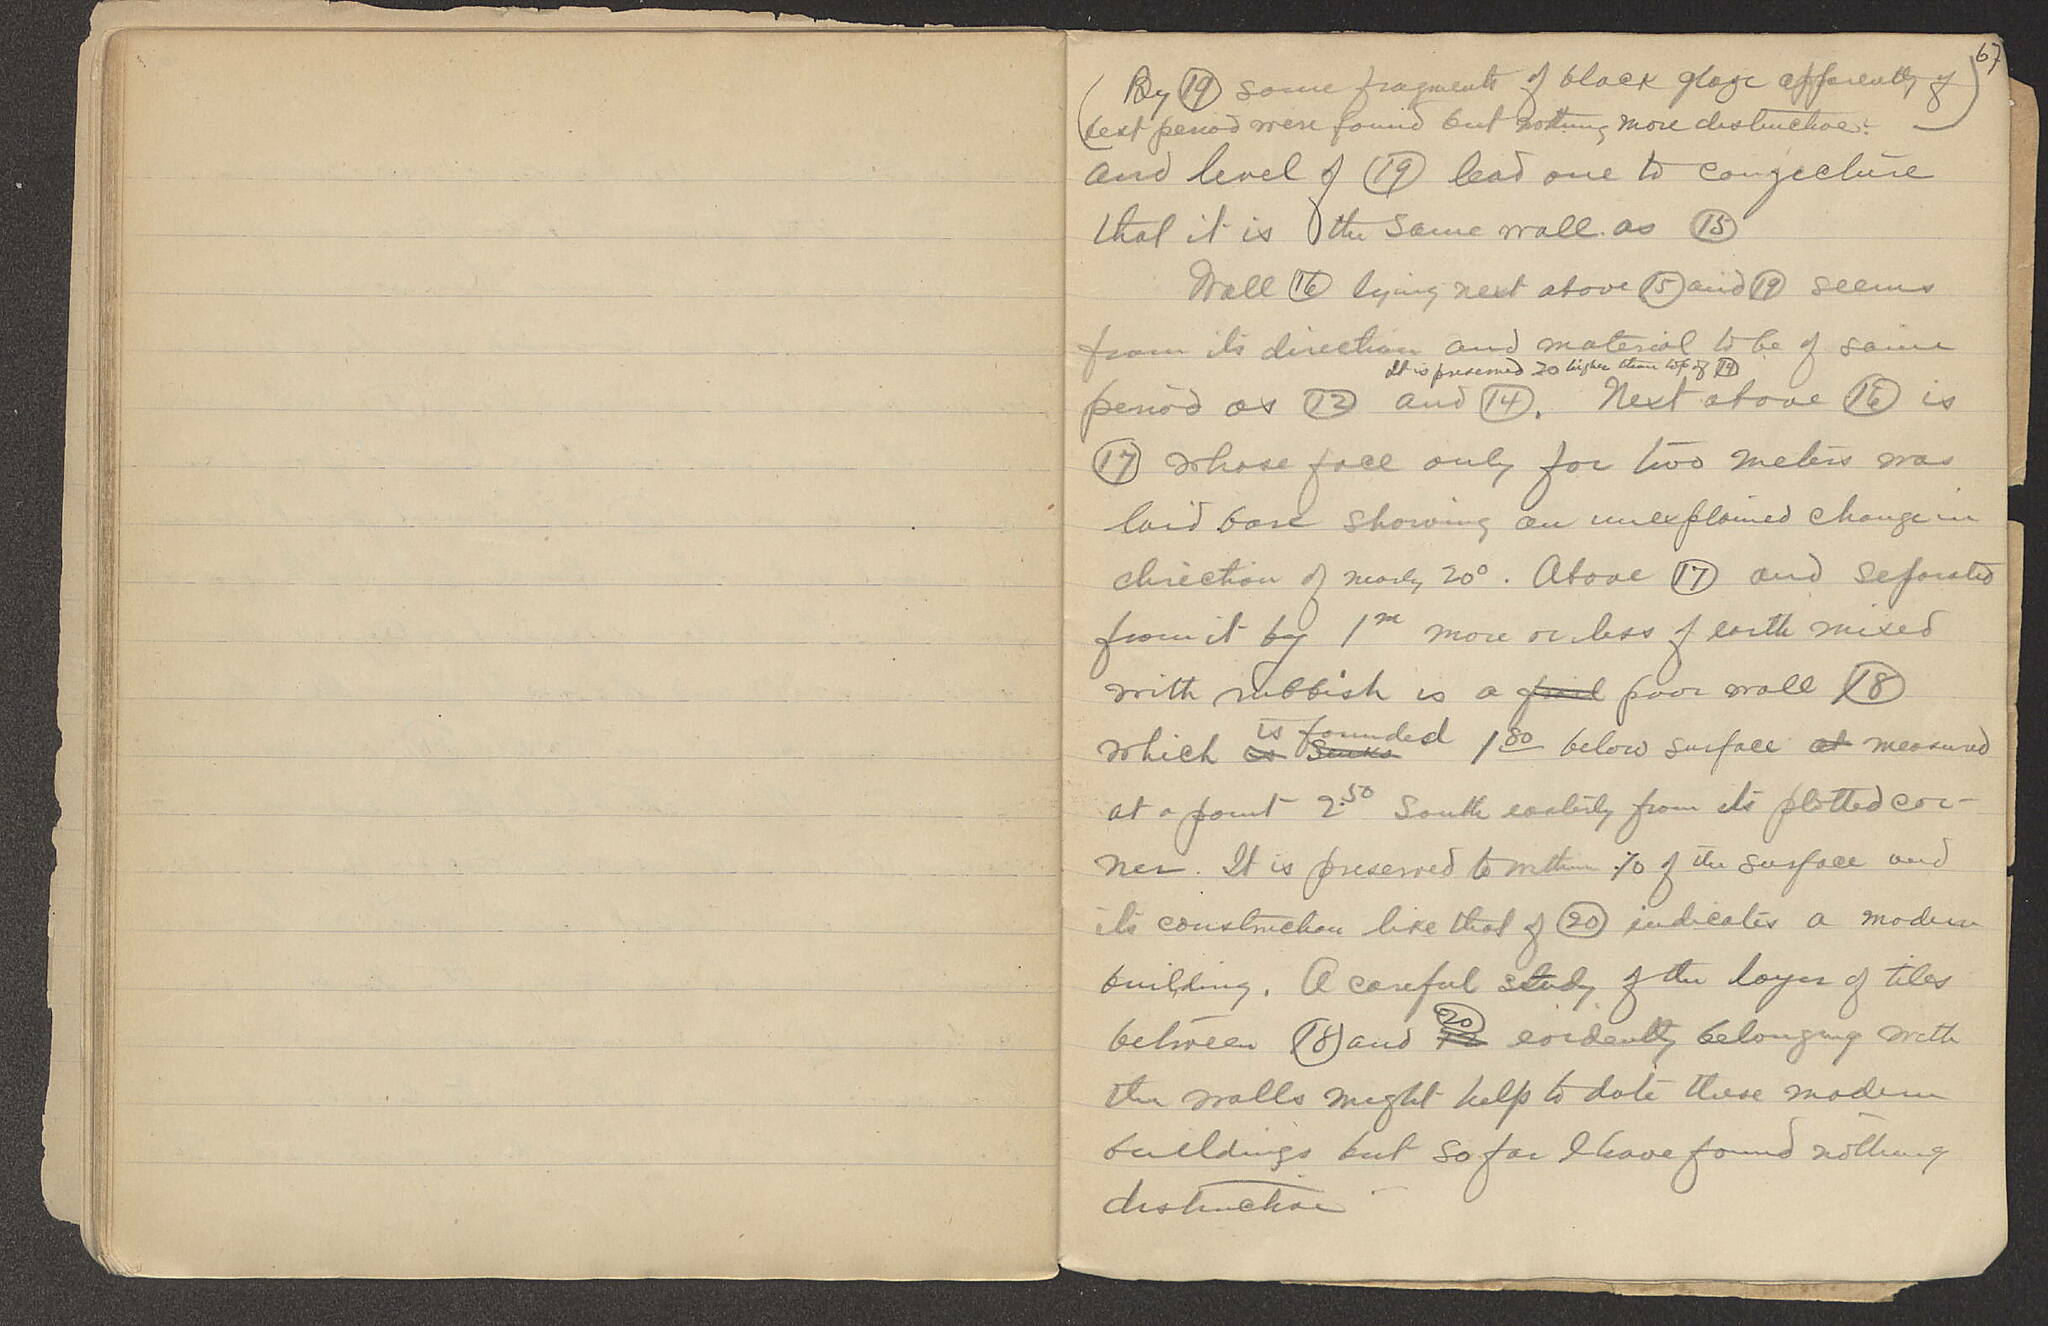 67
(By (19) some fragments of black glaze apparently of
best period were found but nothing more distinctive.)
and level of (19) lead one to conjecture
that it is the same wall as (15)
Wall (16) lying next above (15) and (19) seems
from its direction and material to be of same
It is preserved 20 higher than top of (14)
period as (12) and (14). Next above (16) is
(17) whose face only for two meters was
laid bare showing an unexplained change in
direction of nearly 20°. Above (17) and separated
from it by 1m more or less of earth mixed
with rubbish is a poor wall (18)
is founded
which 1.80 below surface at measured
at a point 2.50 South easterly from its plotted cor-
ner. It is preserved to within .10 of the surface and
its construction like that of (20) indicates a modern
building. A careful study of the layer of tiles
(20)
between (18) and evidently belonging with
the walls might help to date these modern
buildings but so far I have found nothing
distinctive